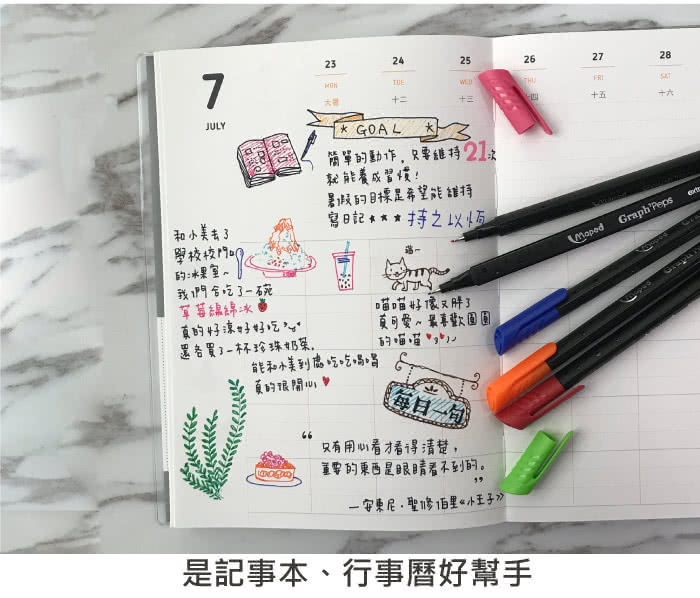 7
JULY
23 24 25 26 27 28
MON TUE WED THU FRI SAT
大暑 十二 十三 十四 十五 十六
★ GOAL ★
簡單的動作，只要維持21次
就能養成習慣！
暑假的目標是希望能維持
寫日記★★★ 持之以恆
和小美去了
學校校門口
的冰果室~
我們合吃了一碗
草莓綿綿冰
真的好涼好好吃
還各買了一杯珍珠奶茶。
能和小美到處吃吃喝喝
真的很開心
喵~
喵喵好像又胖了
真可愛~ 最喜歡圓圓
的喵喵
每日一句
“
只有用心看才看得清楚，
重要的東西是眼睛看不到的。
”
—安東尼·聖修伯里《小王子》
Maped
Maped Graph'Peps
是記事本、行事曆好幫手